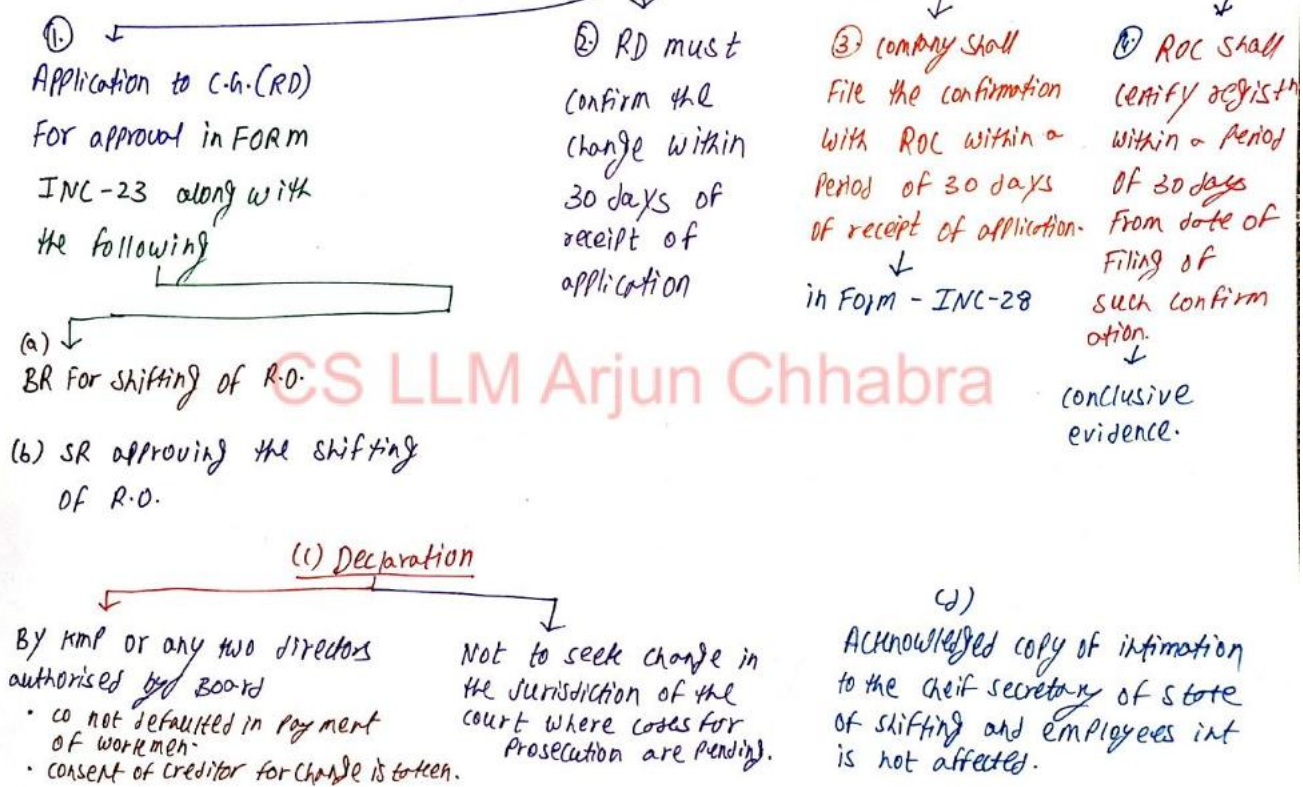 ①.
Application to C.G.(RD)
For approval in FORM
INC-23 along with
the following
② RD must
confirm the
change within
30 days of
receipt of
application
③ company shall
File the confirmation
with ROC within a
Period of 30 days
of receipt of application.
in Form - INC-28
④ ROC shall
certify registh
within a period
of 30 days
From date of
Filing of
such confirm
ation.
conclusive
evidence.
(a)
BR For shifting of R.O.
CS LLM Arjun Chhabra
(b) SR approving the shifting
of R.O.
(c) Declaration
By KMP or any two directors
authorised by Board
• co not defaulted in payment
of workmen.
• consent of creditor for change is taken.
Not to seek change in
the jurisdiction of the
court where cases for
prosecution are pending.
(d)
Acknowledged copy of intimation
to the cheif secretary of state
of shifting and employees int
is not affected.